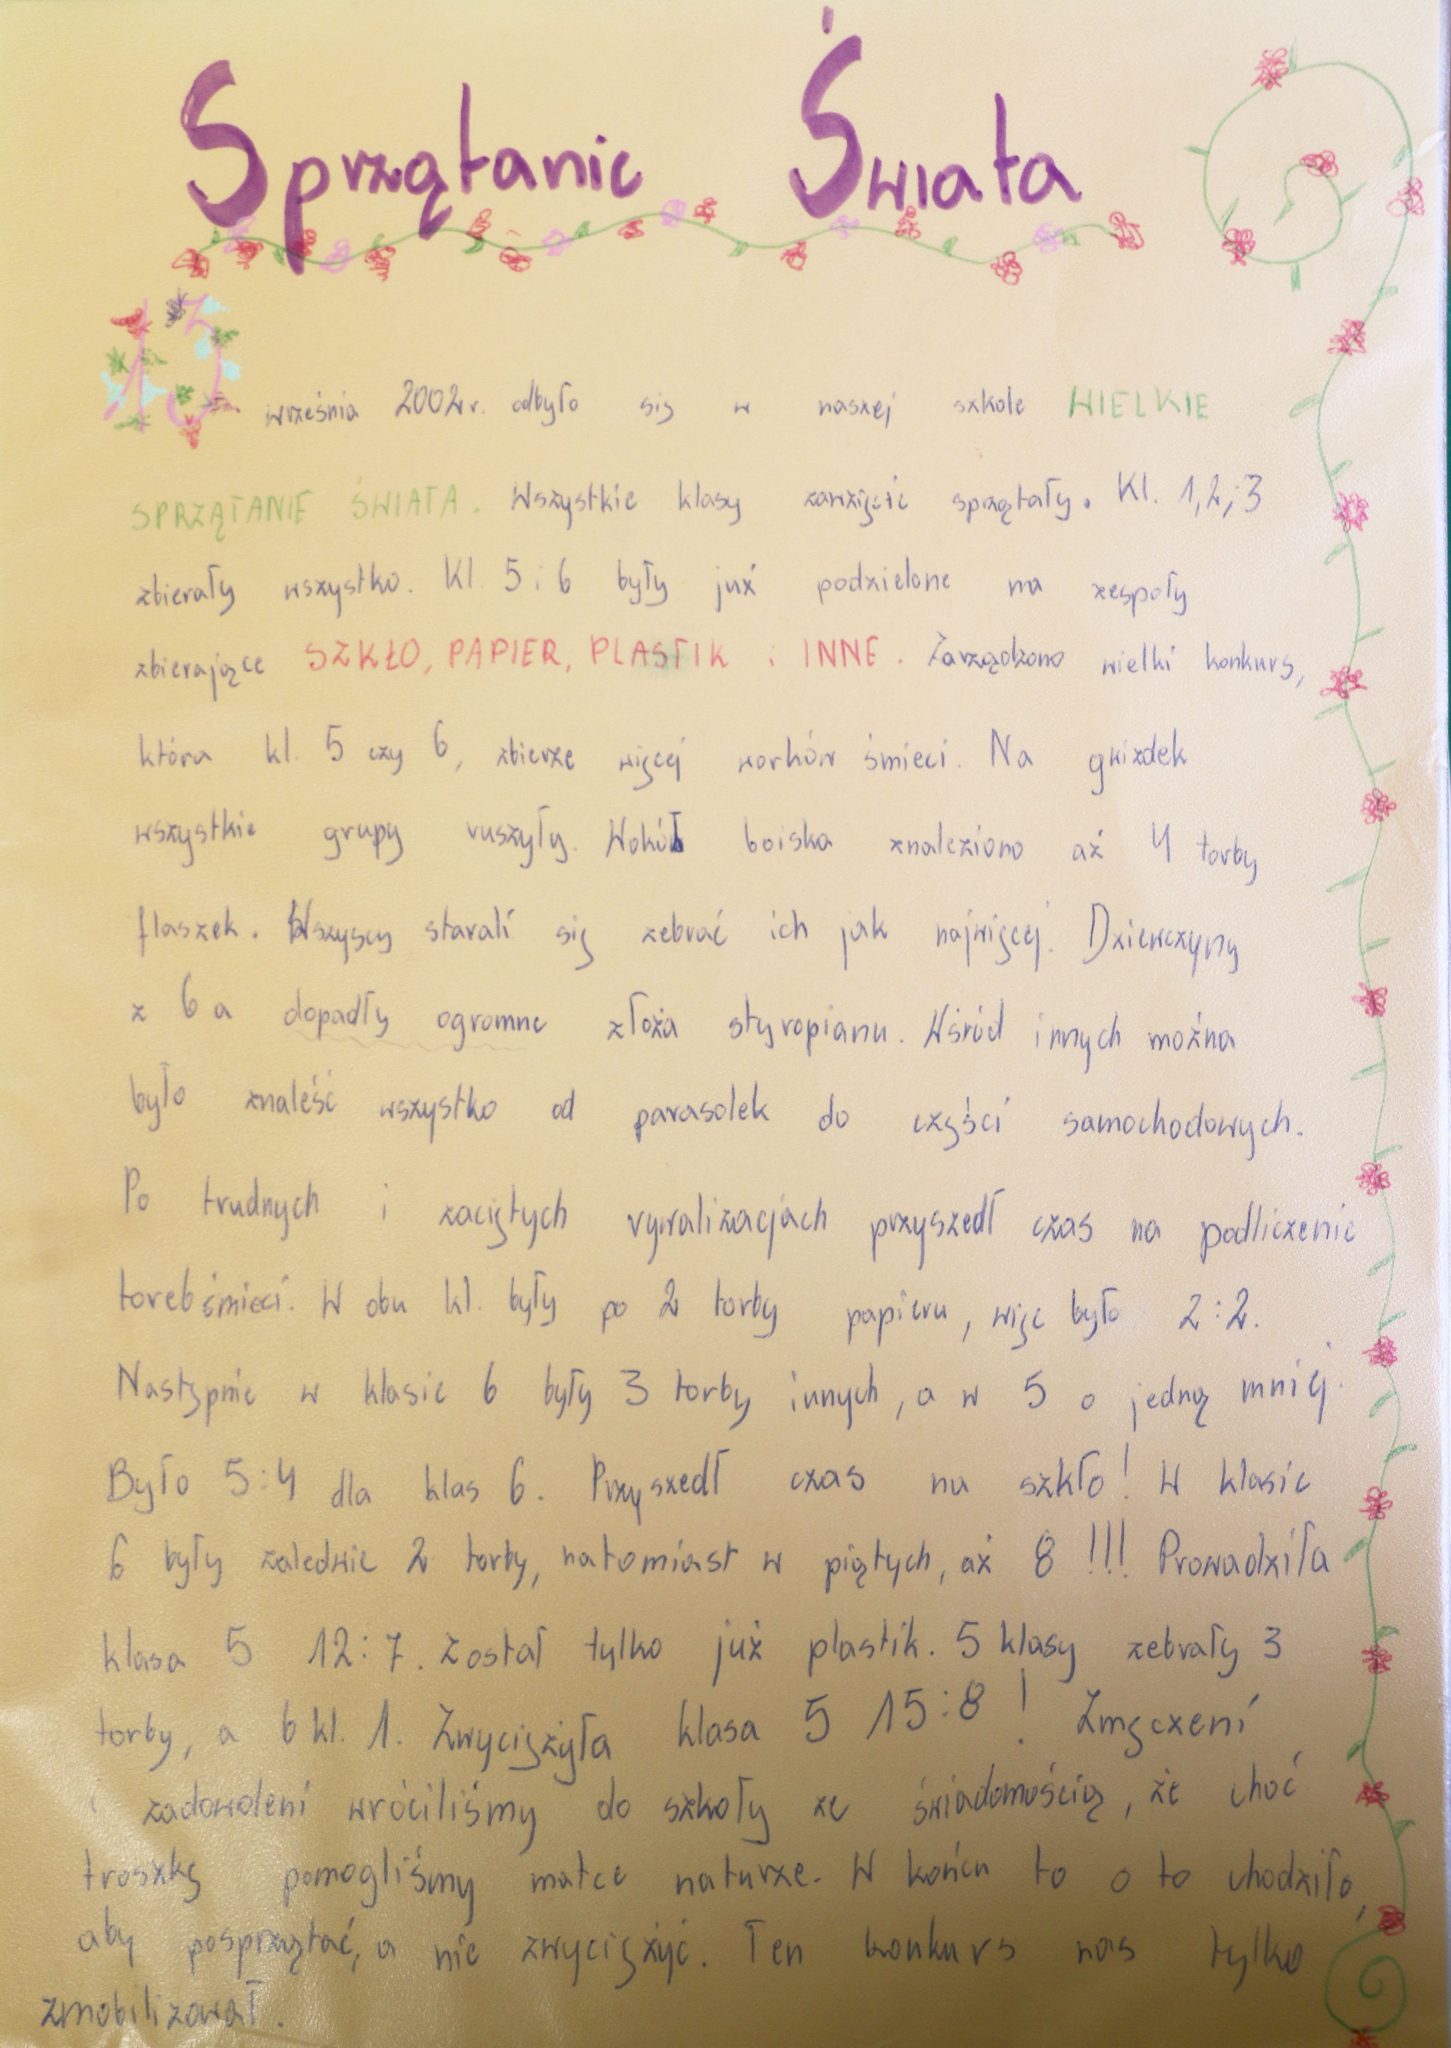 Sprzątanie Świata
13 września 2002r. odbyło się w naszej szkole WIELKIE
SPRZĄTANIE ŚWIATA. Wszystkie klasy zawzięcie sprzątały. Kl. 1,2,i3
zbierały wszystko. Kl 5 i 6 były już podzielone na zespoły
zbierające SZKŁO, PAPIER, PLASTIK i INNE. Zarządzono wielki konkurs,
która kl. 5 czy 6, zbierze więcej worków śmieci. Na gwizdek
wszystkie grupy ruszyły. Wokół boiska znaleziono aż 4 torby
flaszek. Wszyscy starali się zebrać ich jak najwięcej. Dziewczyny
z 6a dopadły ogromne złoża styropianu. Wśród innych można
było znaleść wszystko od parasolek do części samochodowych.
Po trudnych i zaciętych rywalizacjach przyszedł czas na podliczenie
toreb śmieci. W obu kl. były po 2 torby papieru, więc było 2:2.
Następnie w klasie 6 były 3 torby innych, a w 5 o jedną mniej.
Było 5:4 dla klas 6. Przyszedł czas na szkło! W klasie
6 były zaledwie 2 torby, natomiast w piątych, aż 8 !!! Prowadziła
klasa 5 12:7. Został tylko już plastik. 5 klasy zebrały 3
torby, a 6 kl. 1. Zwyciężyła klasa 5 15:8 ! Zmęczeni
i zadowoleni wróciliśmy do szkoły ze świadomością, że choć
troszkę pomogliśmy matce naturze. W końcu to o to chodziło,
aby posprzątać, a nie zwyciężyć. Ten konkurs nas tylko
zmobilizował.